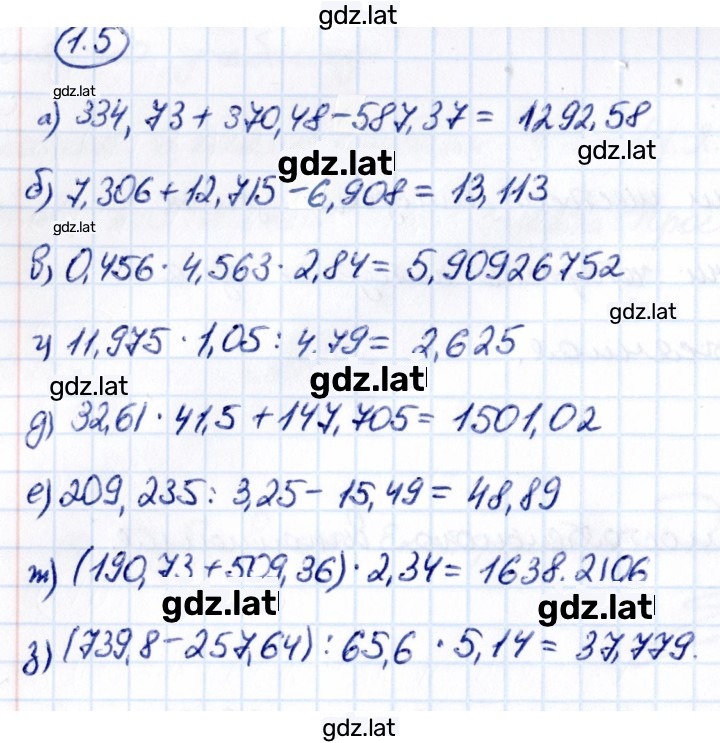 gdz.lat
1.5
gdz.lat
а) 334,73 + 370,48 - 587,37 = 1292,58
gdz.lat
gdz.lat
б) 7,306 + 12,715 - 6,908 = 13,113
gdz.lat
в) 0,456 · 4,563 · 2,84 = 5,90926752
gdz.lat
г) 11,975 · 1,05 : 4.79 = 2,625
gdz.lat
gdz.lat
д) 32,61 · 41,5 + 147,705 = 1501,02
е) 209,235 : 3,25 - 15,49 = 48,89
ж) (190,73 + 509,36) · 2,34 = 1638.2106
gdz.lat
gdz.lat
з) (739,8 - 257,64) : 65,6 · 5,14 = 37,779.
gdz.lat